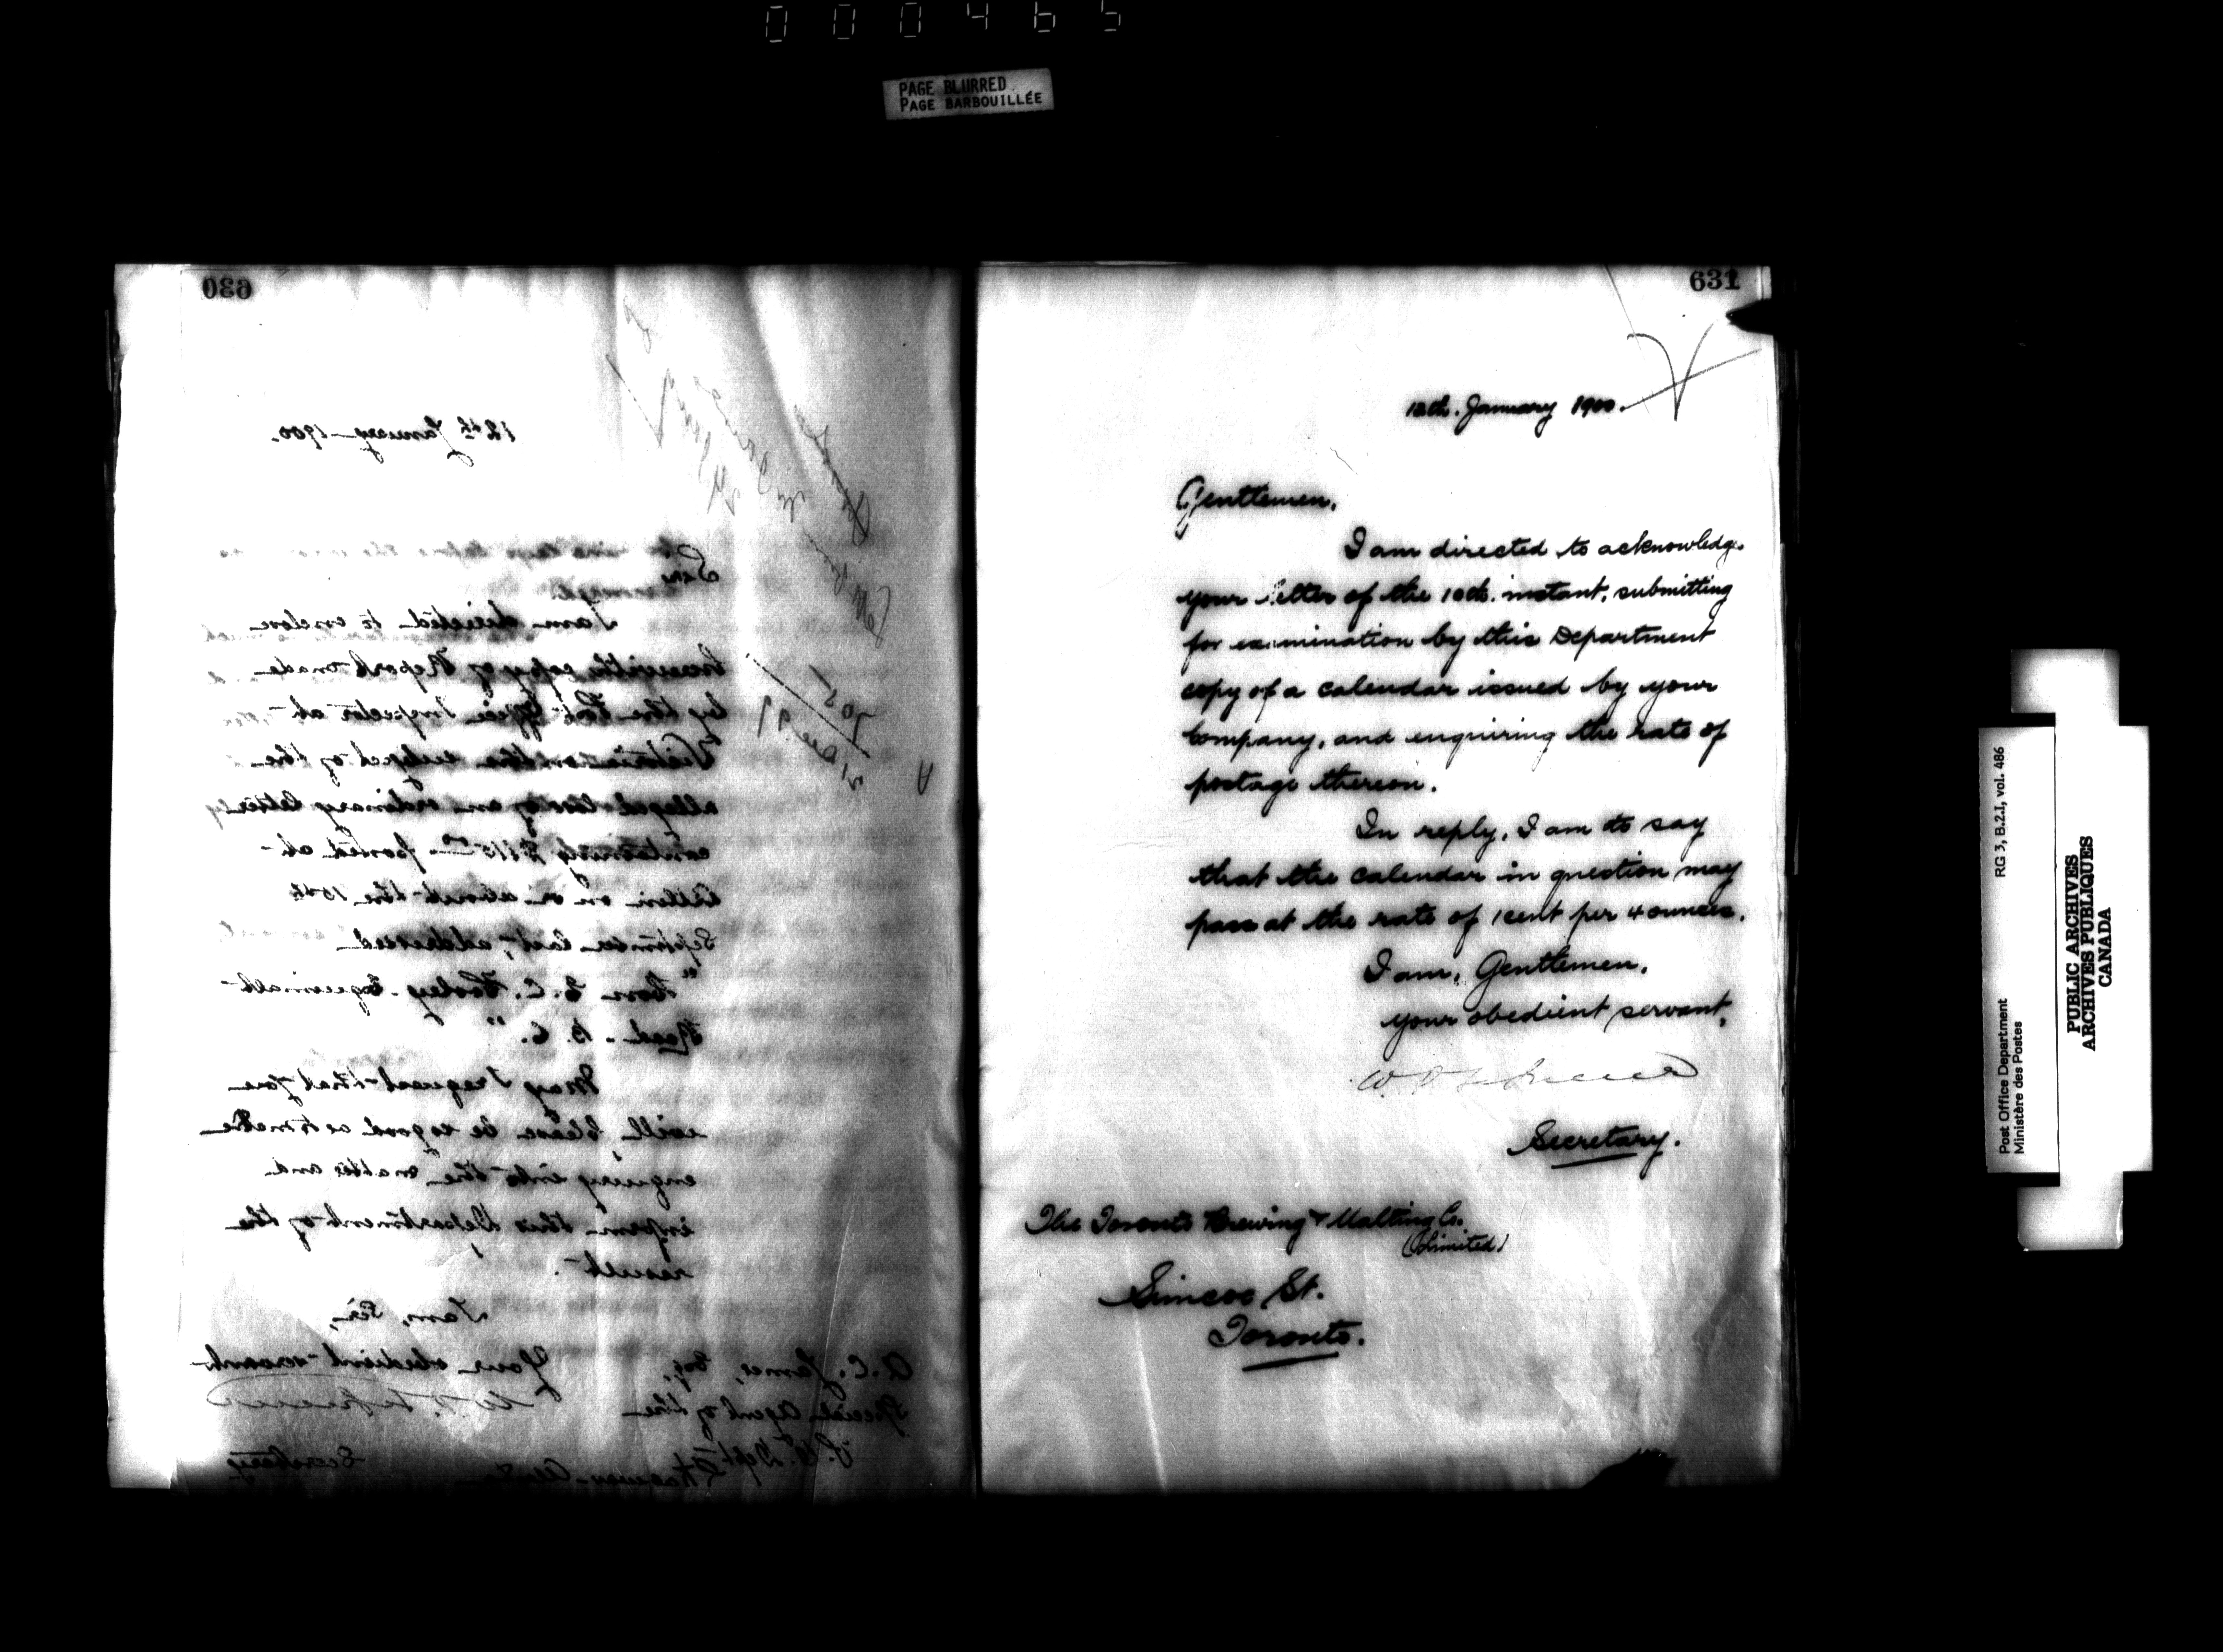 000465
PAGE BLURRED
PAGE BARBOUILLÉE
630
12th January 1900.
Sir,
I am directed to enclose
herewith copy of Report made
by the Post Office Inspector at
Victoria on the subject of the
alleged loss of an ordinary letter
containing posted at
Atlin on or about the 15th
September last, addressed
Esquimalt
Road. B.C."
May I request that you
will please be so good as to make
enquiry into the matter and
inform this Department of the
result.
I am, Sir,
Your obedient servant
Secretary
A. C. James, Esq.
Special Agent of the
P. O. Dept.
631
12th. January 1900.
Gentlemen,
I am directed to acknowledge
your letter of the 10th. instant, submitting
for examination by this Department
copy of a calendar issued by your
Company, and enquiring the rate of
postage thereon.
In reply, I am to say
that the calendar in question may
pass at the rate of 1 cent per 4 ounces.
I am, Gentlemen,
Your obedient servant,
Secretary.
The Toronto Brewing & Malting Co.
(Limited)
Simcoe St.
Toronto.
RG 3, B.2.I, vol. 486
Post Office Department
Ministère des Postes
PUBLIC ARCHIVES
ARCHIVES PUBLIQUES
CANADA